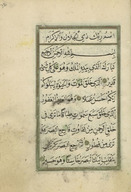 اسم ربك ذي الجلال والاكرام
بسم الله الرحمن الرحيم
تبارك الذي بيده الملك وهو على كل شيء
قدير الذي خلق الموت والحيوة ليبلوكم
ايكم احسن عملا وهو العزيز الغفور
الذي خلق سبع سموات طباقا ما ترى في
خلق الرحمن من تفاوت فارجع البصر هل
ترى من فطور ثم ارجع البصر كرتين
ينقلب اليك البصر خاسئا وهو حسير